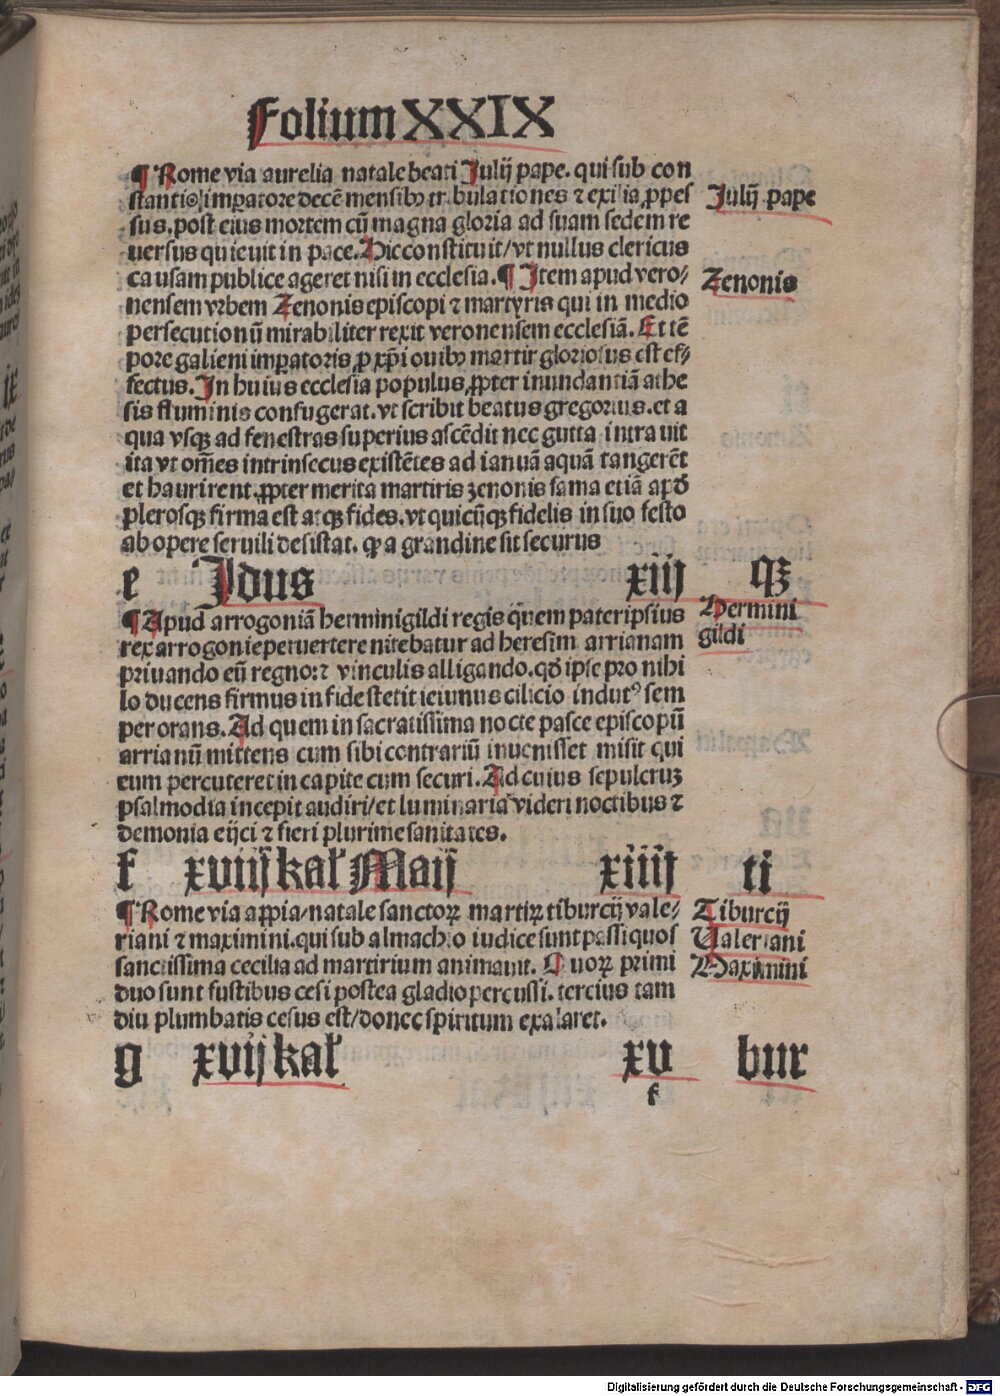 Folium XXIX
¶ Rome via aurelia natale beati Julij pape. qui sub con
stantio imperatore decē mensibꝰ tribulationes ⁊ exilia ꝓpes
sus. post eius mortem cū magna gloria ad suam sedem re
uersus quieuit in pace. Hic constituit/vt nullus clericus
causam publice ageret nisi in ecclesia. ¶ Item apud vero⸗
nensem vrbem Zenonis episcopi ⁊ martyris qui in medio
persecutionū mirabiliter rexit veronensem ecclesiā. Et tē
pore galieni imꝑatoris ꝓ xp̄i ouibꝰ martir gloriosus est ef⸗
fectus. In huius ecclesia populus ꝓpter inundantiā athe
sis fluminis confugerat. vt scribit beatus gregorius. et a
qua vsqꝫ ad fenestras superius ascēdit nec gutta intrauit
ita vt om̄es intrinsecus existētes ad ianuā aquā tangerēt
et haurirent. ꝓpter merita martiris zenonis fama etiā apd̄
plerosqꝫ firma est atqꝫ fides. vt quicūqꝫ fidelis in suo festo
ab opere seruili desistat. qͥ a grandine sit securus
Julij pape
Zenonis
e Idus xiij qꝫ
¶ Apud arrogoniā herminigildi regis quem pater ipsius
rex arrogonie peruertere nitebatur ad heresim arrianam
priuando eū regno: ⁊ vinculis alligando. qd̄ ipse pro nihi
lo ducens firmus in fide stetit ieiunus cilicio indutꝰ sem
per orans. Ad quem in sacratissima nocte pasce episcopū
arrianū mittens cum sibi contrariū inuenisset misit qui
eum percuteret in capite cum securi. Ad cuius sepulcruꝫ
psalmodia incepit audiri/et luminaria videri noctibus ⁊
demonia eijci ⁊ fieri plurime sanitates.
Hermini
gildi
f xviij kal̄ Maij xiiij ti
¶ Rome via appia/natale sanctoꝝ martiꝝ tiburcij vale⸗
riani ⁊ maximini. qui sub almachio iudice sunt passi quos
sanctissima cecilia ad martirium animauit. Quoꝝ primi
duo sunt fustibus cesi postea gladio percussi. tercius tam
diu plumbatis cesus est/donec spiritum exalaret.
Tiburcij
Valeriani
Maximini
g xvij kal̄ xv bur
f
Digitalisierung gefördert durch die Deutsche Forschungsgemeinschaft - DFG